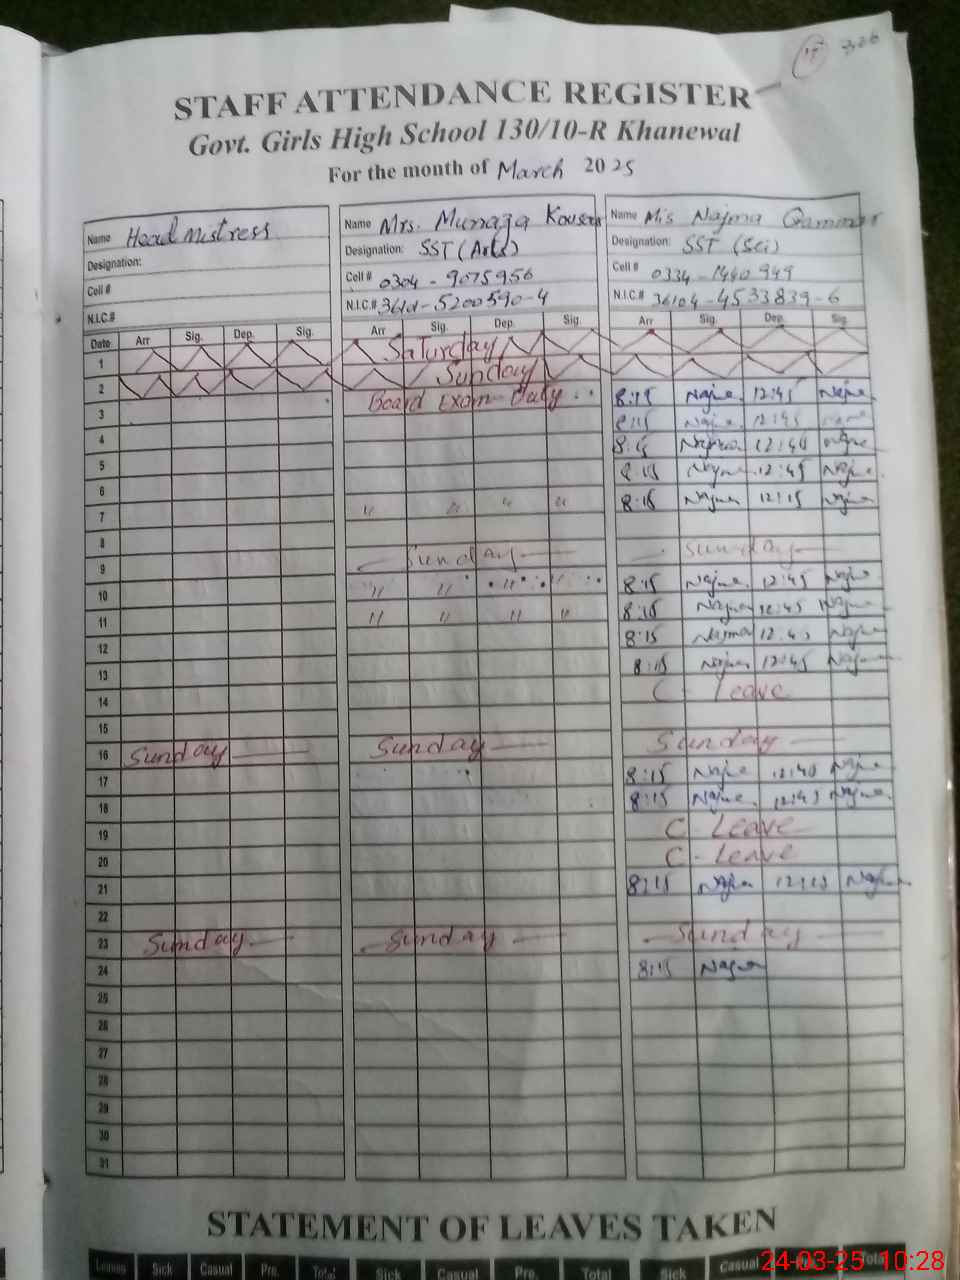 306
STAFF ATTENDANCE REGISTER
Govt. Girls High School 130/10-R Khanewal
For the month of March 2025
Name Head mistress
Designation:
Cell #
N.I.C.#
Name Mrs. Munaza Kousar
Designation: SST (Arts)
Cell # 0304-9075956
N.I.C.#
Name Mis Najma Qammar
Designation: SST (Sci)
Cell # 0334-1440949
N.I.C.# 36104-4533839-6
Date Arr Sig. Dep. Sig. Arr Sig. Dep. Sig. Arr Sig. Dep. Sig.
1 Saturday
2 Sunday
3 Board Exam Duty 8:15 Najma 12:45 Najma
4 8:15 Najma 12:45
5 Najma 12:40 Najma
6 8:15 Najma 12:45 Najma
7 " " " " 8:15 Najma 12:15 Najma
8
9 Sunday Sunday
10 " " " " 8:15 Najma 12:45 Najma
11 " " " " 8:15 Najma 12:45 Najma
12 8:15 Najma Najma
13 8:15 Najma 12:45 Najma
14 C - Leave
15
16 Sunday Sunday Sunday
17 8:15 Najma 12:40 Najma
18 8:15 Najma 12:45 Najma
19 C - Leave
20 C - Leave
21 8:15 Najma 12:15 Najma
22
23 Sunday Sunday Sunday
24 8:15 Najma
25
26
27
28
29
30
31
STATEMENT OF LEAVES TAKEN
Leaves Sick Casual Pre. Total Sick Casual Pre. Total Sick Casual Total
24-03-25 10:28